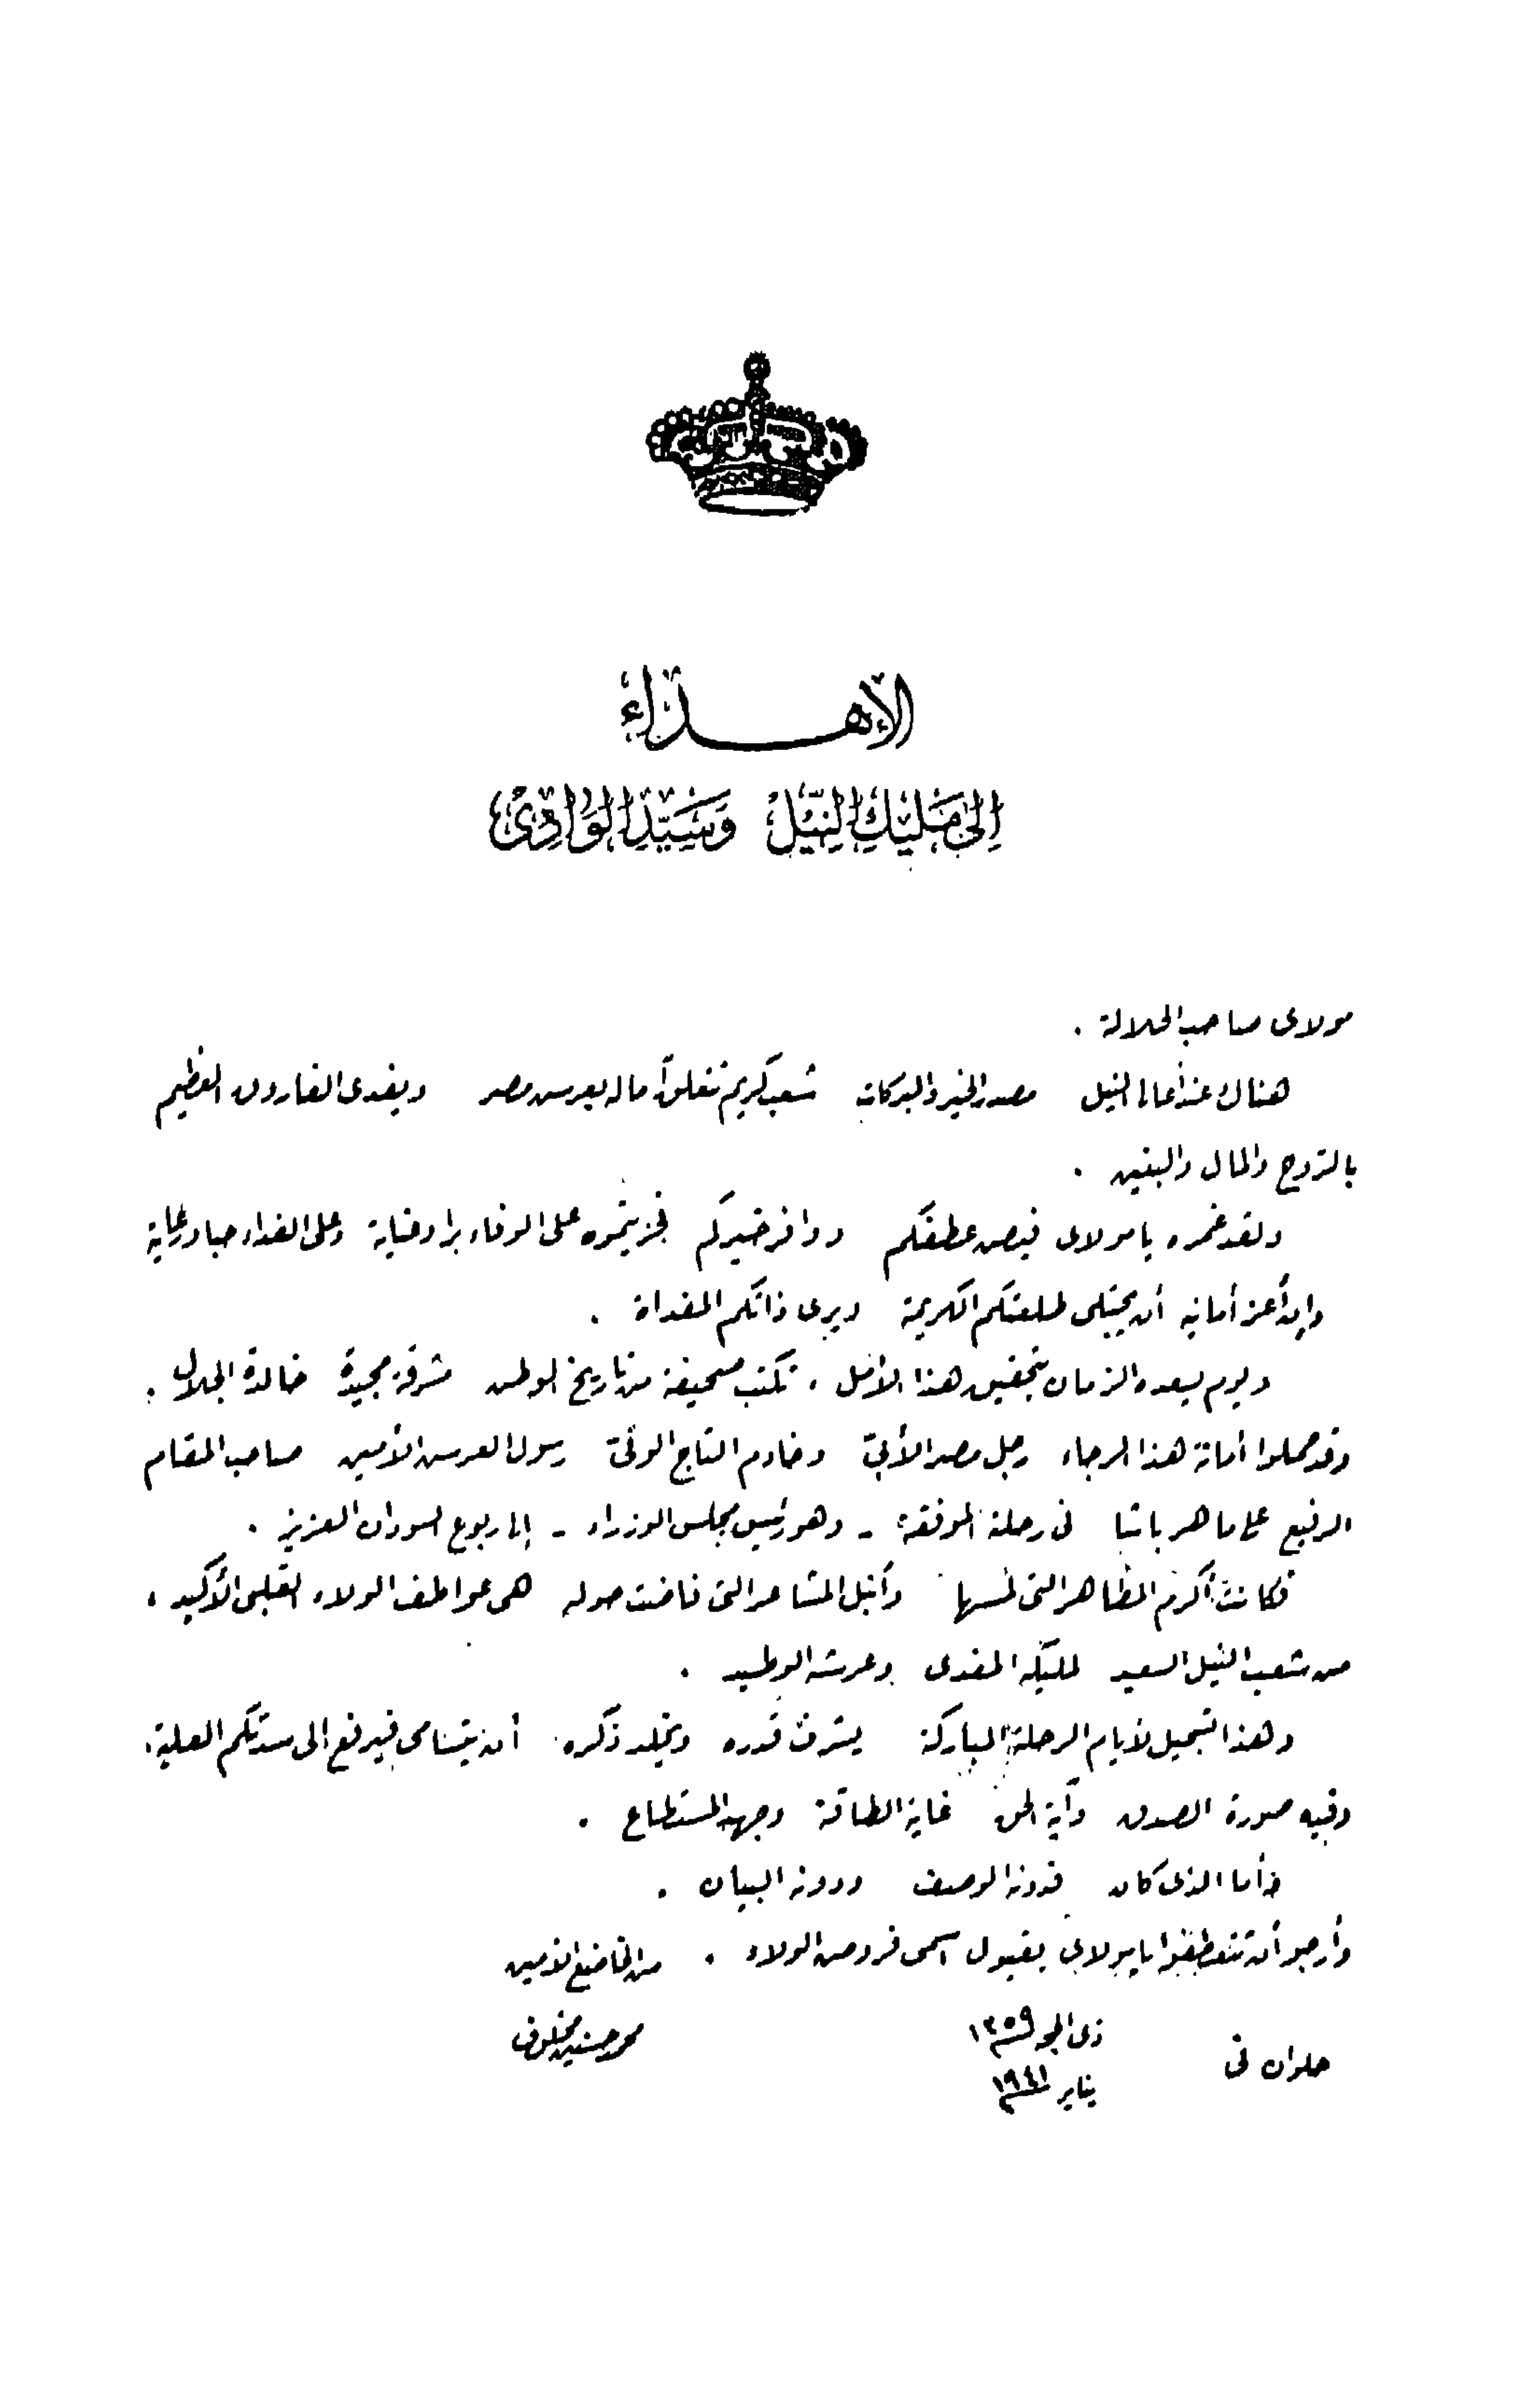 الإهداء
إلى مليك النيل وسيد الوادي
مولاى صاحب الجلالة .
هناك عند أعالى النيل مصدر الخير والبركات شعب كريم تتعلق آماله بعرش مصر ويفدى الفاروق العظيم
بالروح والمال والبنين .
ولقد غمره يا مولاى فيض عطفكم ووافر خيركم فجزيتموه على الوفاء برا وعناية وعلى الفداء حبا ورعاية
وإن أعز أمانيه أن يجتلى طلعتكم الكريمة ويرى ذاتكم المفداة .
ويوم يسعده الزمان بتحقيق هذا الأمل ، تكتب صحيفة من تاريخ الوطن مشرقة مجيدة خالدة الجلال .
وقد حملوا أمانة هذا الرجاء رجل مصر الأبىّ وخادم التاج الوفىّ رسول العرش الأمين صاحب المقام
الرفيع على ماهر باشا فى رحلته الموفقة - وهو رئيس مجلس الوزراء - إلى ربوع السودان العزيز .
فكانت أكرم المظاهر التى لمسها وأنبل المشاعر التى فاضت حوله هى عواطف الولاء القلبى الأكيد ،
من شعب النيل السعيد لمليكه المفدى وعرشه الوطيد .
وهذا تسجيل لأيام الرحلة المباركة يشرف قدره ويخلد ذكره أن يتسامى فيرفع إلى سدتكم العلية ،
وفيه صورة الصدق وآية الحق غاية الطاقة وجهد المستطاع .
وأما الذى كان فدونه الوصف ودونه البيان .
وأرجو أن تتعطفوا يا مولاى بقبول أسمى فروض الولاء . من الخاضع الأمين
محمد حسنين مخلوف
حلوان فى ذى الحجة ١٣٥٩
يناير ١٩٤١